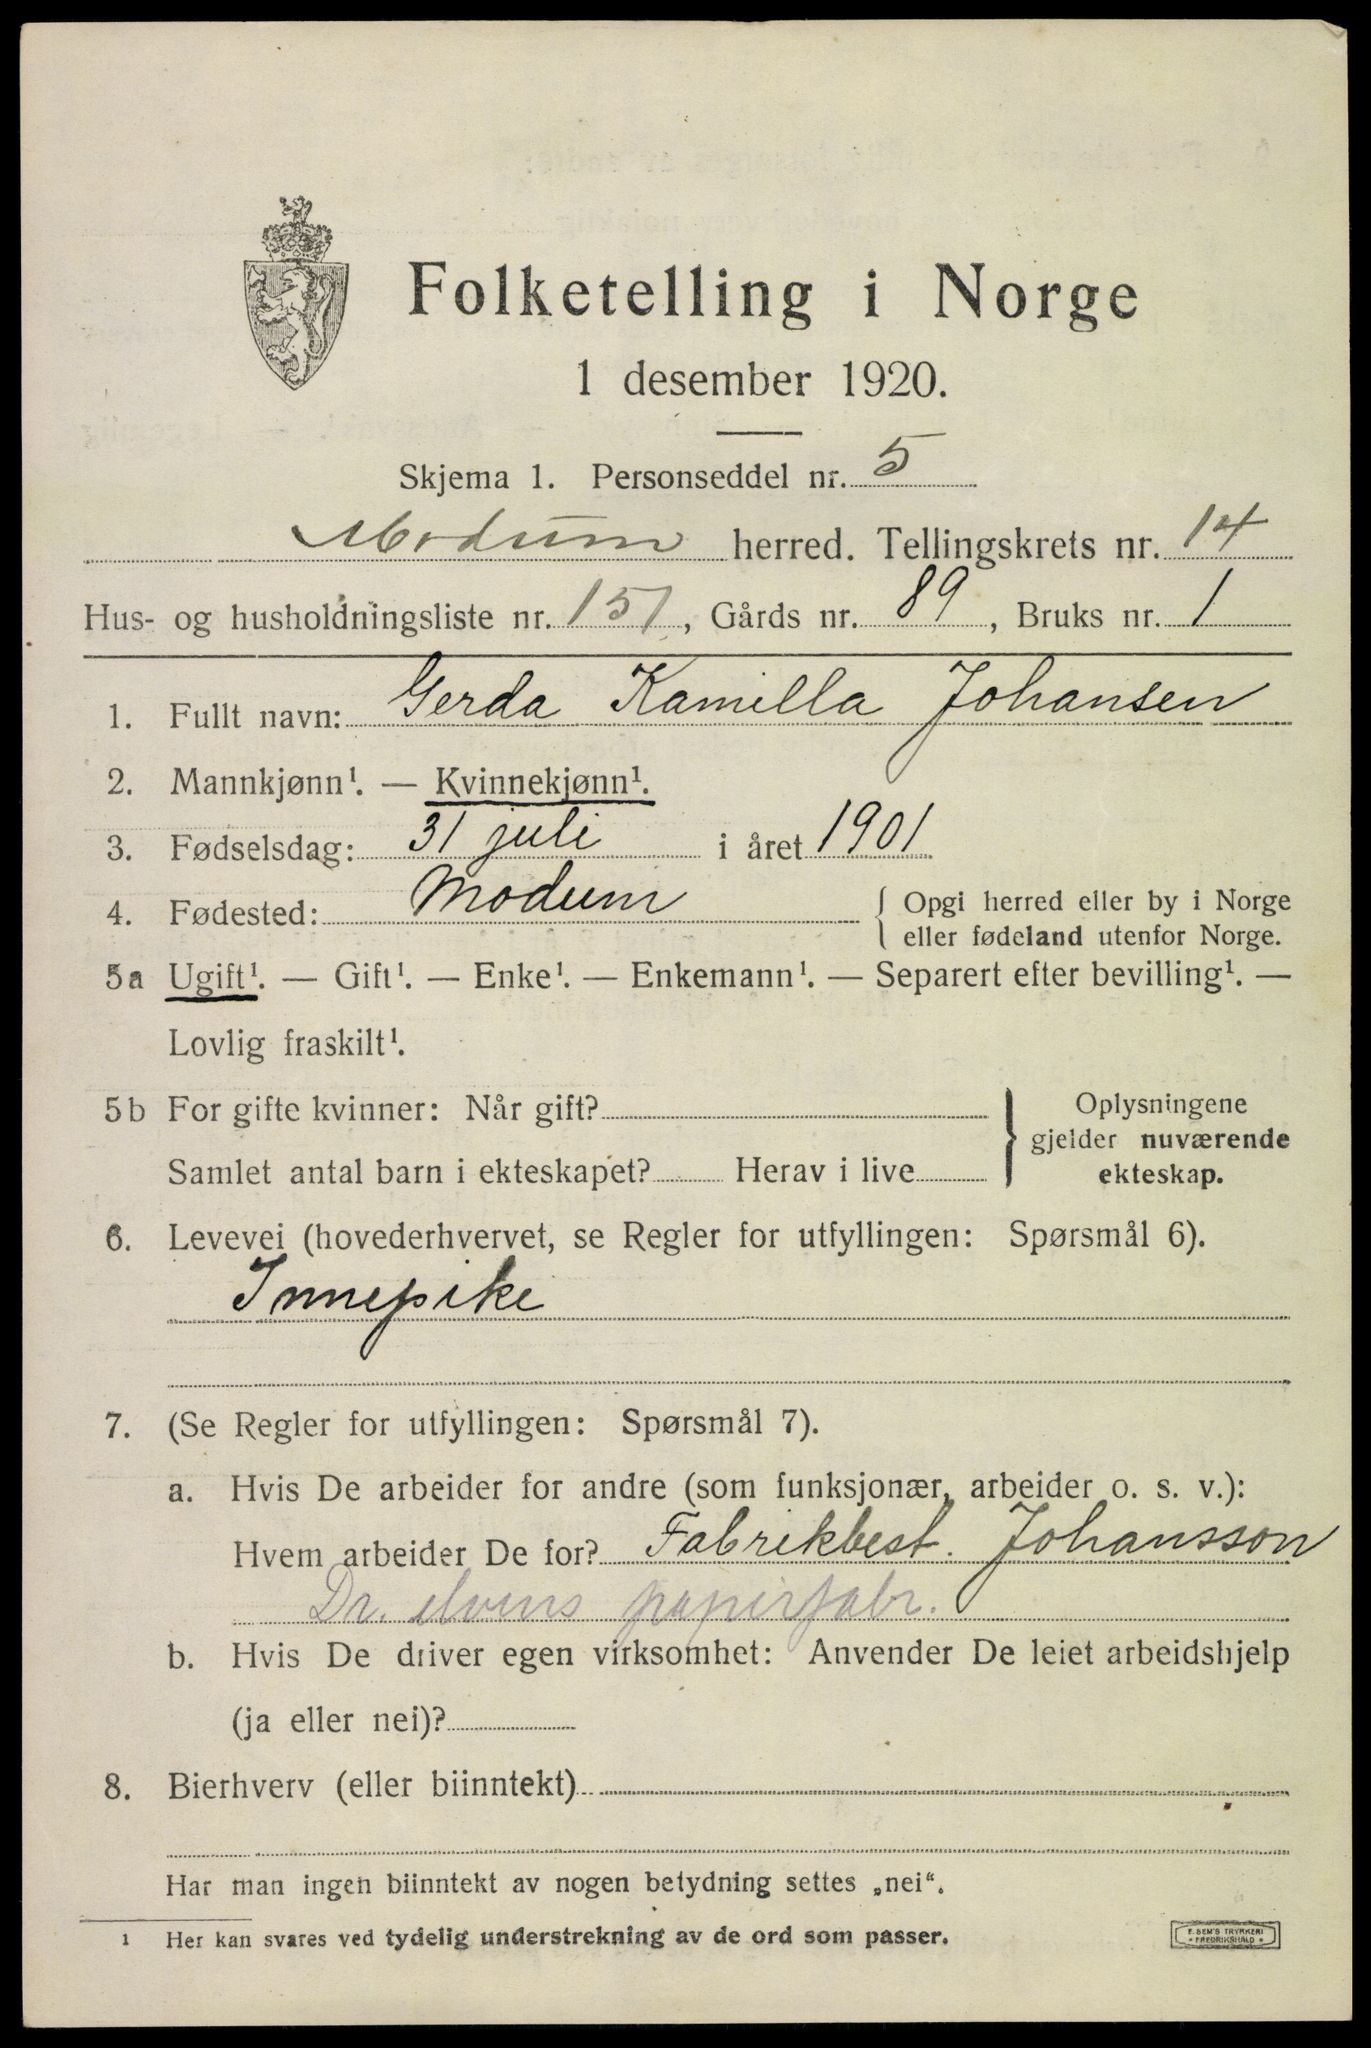 Folketelling i Norge
1 desember 1920.
Skjema 1. Personseddel nr. 5
Modum herred. Tellingskrets nr. 14
Hus- og husholdningsliste nr. 151, Gårds nr. 89, Bruks nr. 1
1. Fullt navn: Gerda Kamilla Johansen
2. Mannkjønn¹. — Kvinnekjønn¹.
3. Fødselsdag: 31 juli i året 1901
4. Fødested: Modum { Opgi herred eller by i Norge
eller fødeland utenfor Norge.
5a Ugift¹. — Gift¹. — Enke¹. — Enkemann¹. — Separert efter bevilling¹. —
Lovlig fraskilt¹.
5b For gifte kvinner: Når gift?
Samlet antal barn i ekteskapet? Herav i live
} Oplysningene
gjelder nuværende
ekteskap.
6. Levevei (hovederhvervet, se Regler for utfyllingen: Spørsmål 6).
Innepike
7. (Se Regler for utfyllingen: Spørsmål 7).
a. Hvis De arbeider for andre (som funksjonær, arbeider o. s. v.):
Hvem arbeider De for? Fabrikbest. Johansson
Dr. elvens papirfabr.
b. Hvis De driver egen virksomhet: Anvender De leiet arbeidshjelp
(ja eller nei)?
8. Bierhverv (eller biinntekt)
Har man ingen biinntekt av nogen betydning settes „nei“.
¹ Her kan svares ved tydelig understrekning av de ord som passer.
F. BEM'S TRYKKERI
* FREDRIKSHALD *